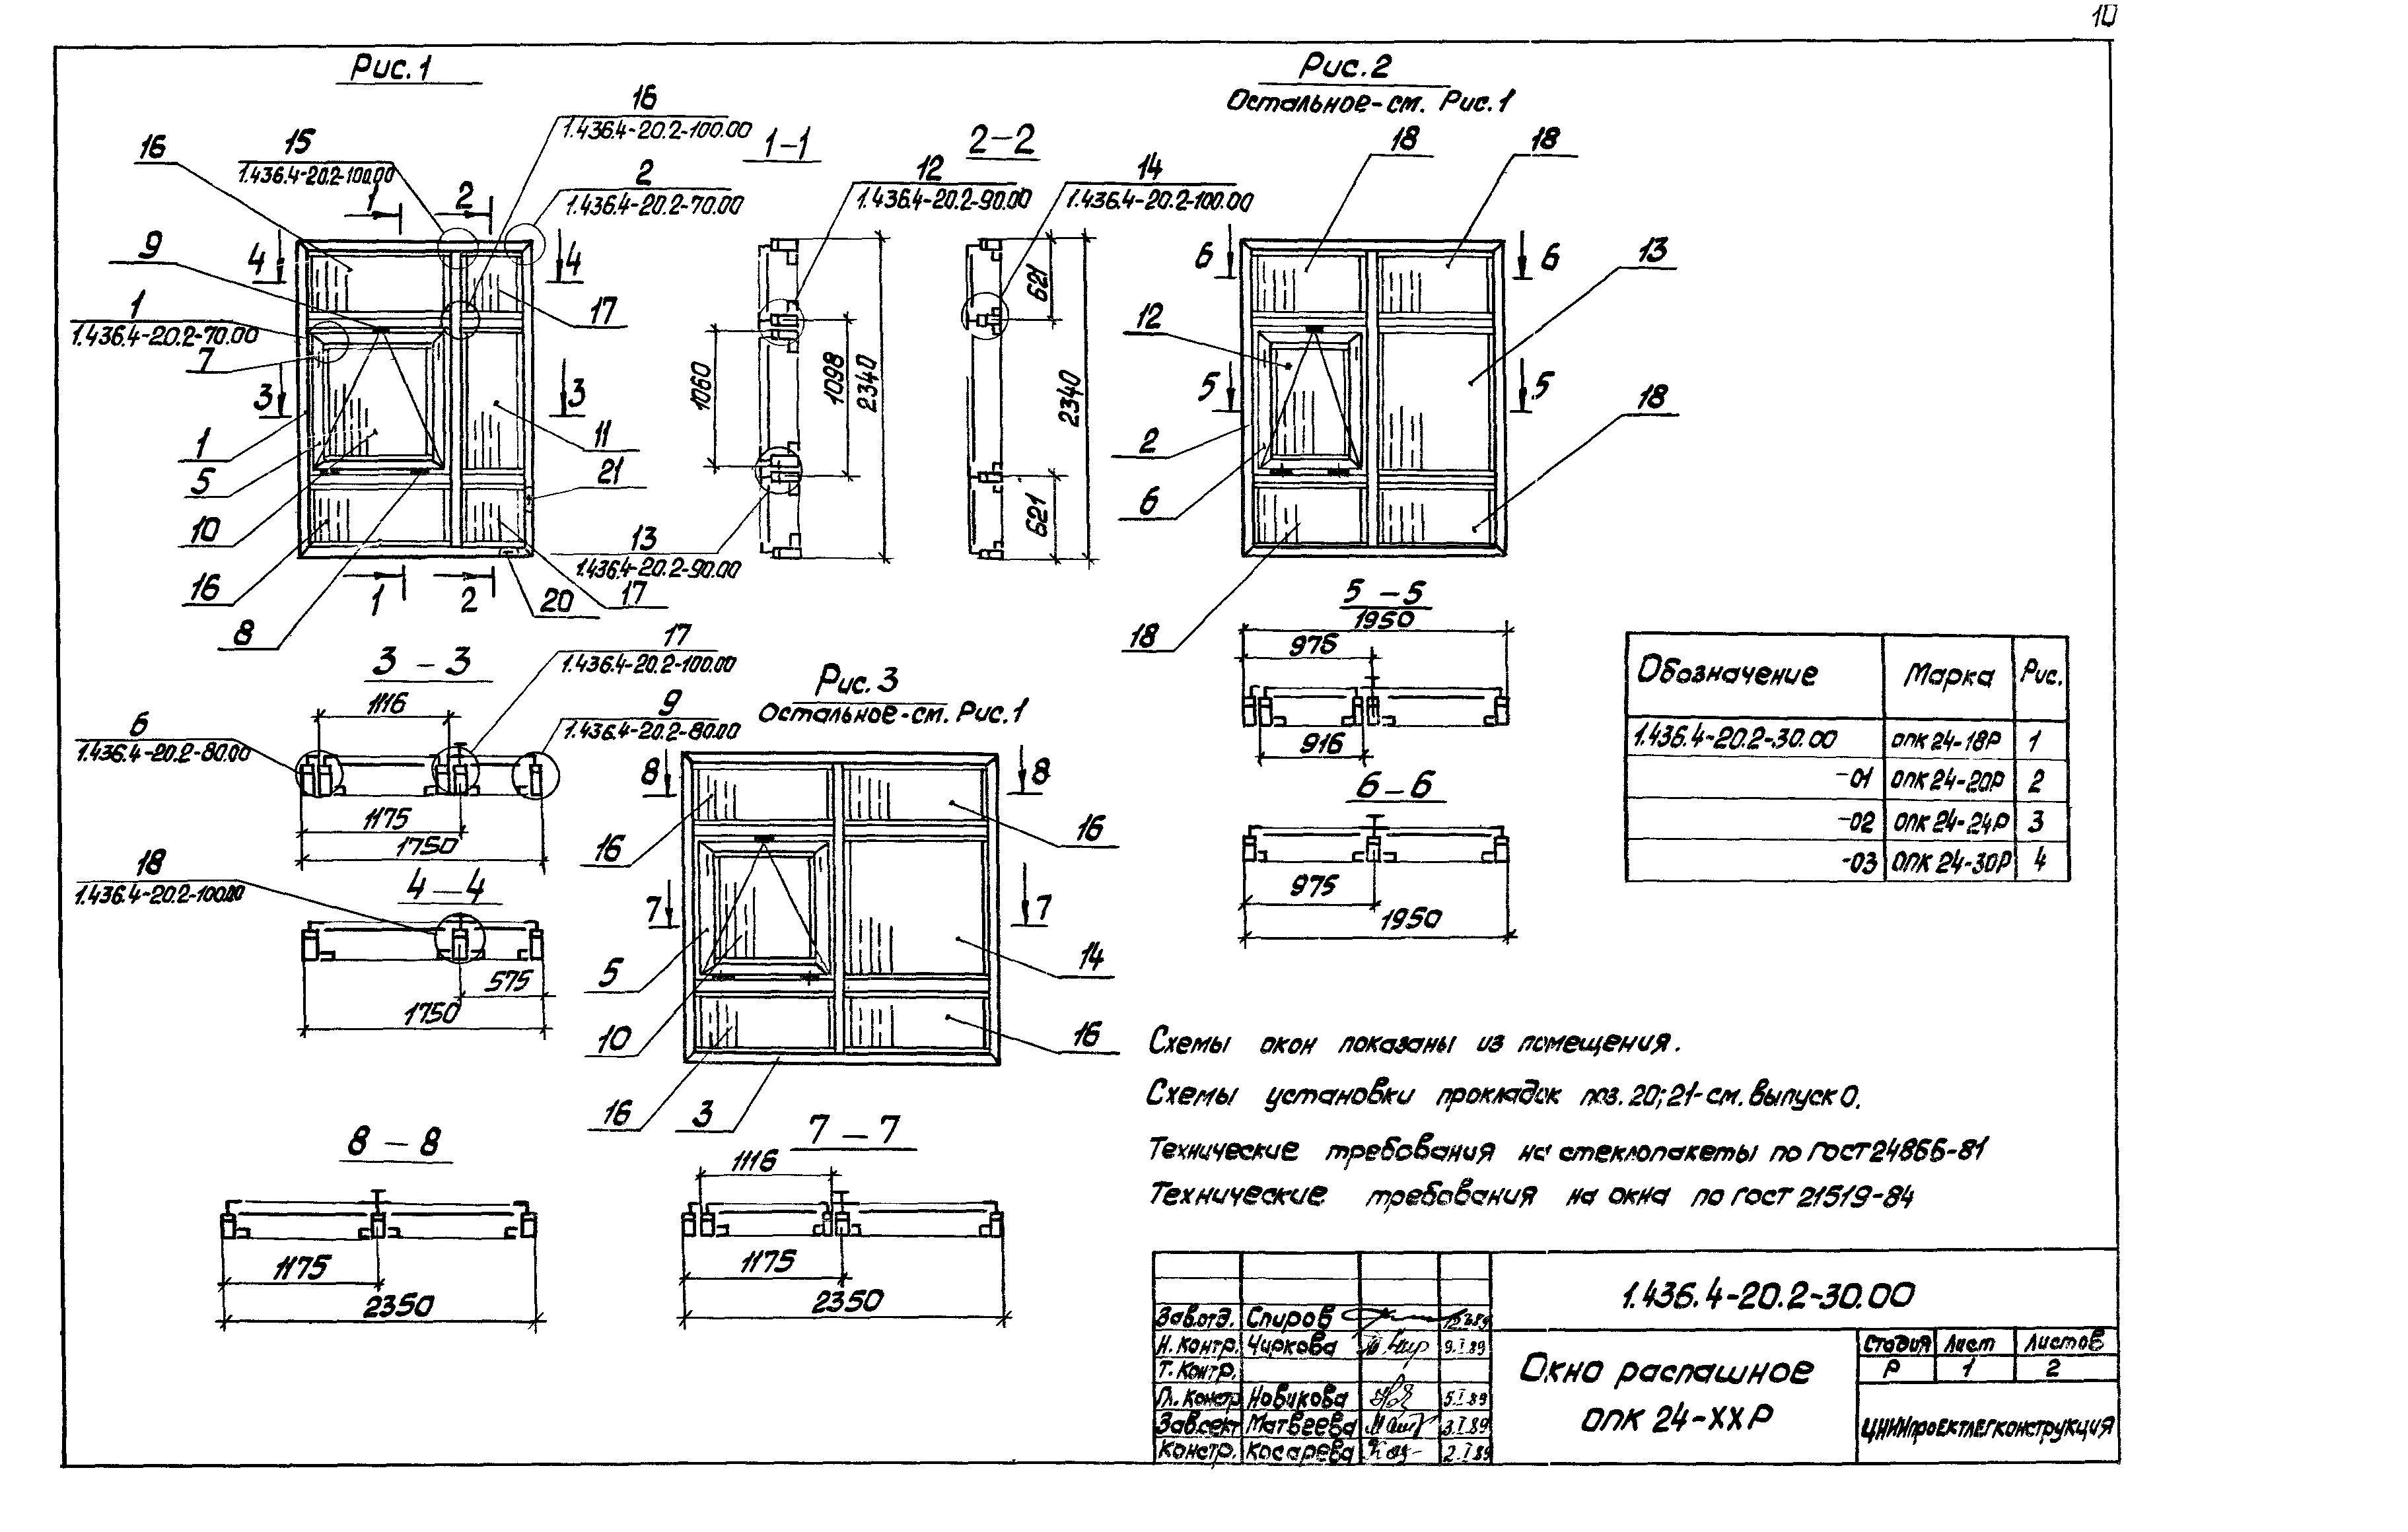 10
Рис. 1
16
15
1.436.4-20.2-100.00
16
1.436.4-20.2-100.00
2
1.436.4-20.2-70.00
1
2
9
4
4
1
1.436.4-20.2-70.00
7
17
3
3
1
5
11
21
10
16
8
1
2
20
17
1-1
12
1.436.4-20.2-90.00
1060
1098
2340
13
1.436.4-20.2-90.00
2-2
14
1.436.4-20.2-100.00
621
2340
621
Рис. 2
Остальное-см. Рис. 1
18
18
6
6
13
12
5
5
18
2
6
18
5-5
1950
975
916
6-6
975
1950
3-3
17
1.436.4-20.2-100.00
1116
6
1.436.4-20.2-80.00
9
1.436.4-20.2-80.00
1175
1750
18
1.436.4-20.2-100.00
4-4
575
1750
Рис. 3
Остальное-см. Рис. 1
8
8
16
16
7
7
5
14
10
16
16
3
8-8
1175
2350
7-7
1116
1175
2350
Обозначение Марка Рис.
1.436.4-20.2-30.00 ОПК 24-18Р 1
-01 ОПК 24-20Р 2
-02 ОПК 24-24Р 3
-03 ОПК 24-30Р 4
Схемы окон показаны из помещения.
Схемы установки прокладок поз. 20; 21-см. выпуск 0.
Технические требования на стеклопакеты по ГОСТ 24866-81
Технические требования на окна по ГОСТ 21519-84
1.436.4-20.2-30.00
Зав.отд. Спиров
Н. контр. Чиркова 9.I.89
Т. Контр.
Гл. констр Новикова 5.I.89
Зав.сект Матвеева 3.I.89
Констр. Косарева 2.I.89
Окно распашное
ОПК 24-ХХР
Стадия Лист Листов
Р 1 2
ЦНИИпроектлегконструкция